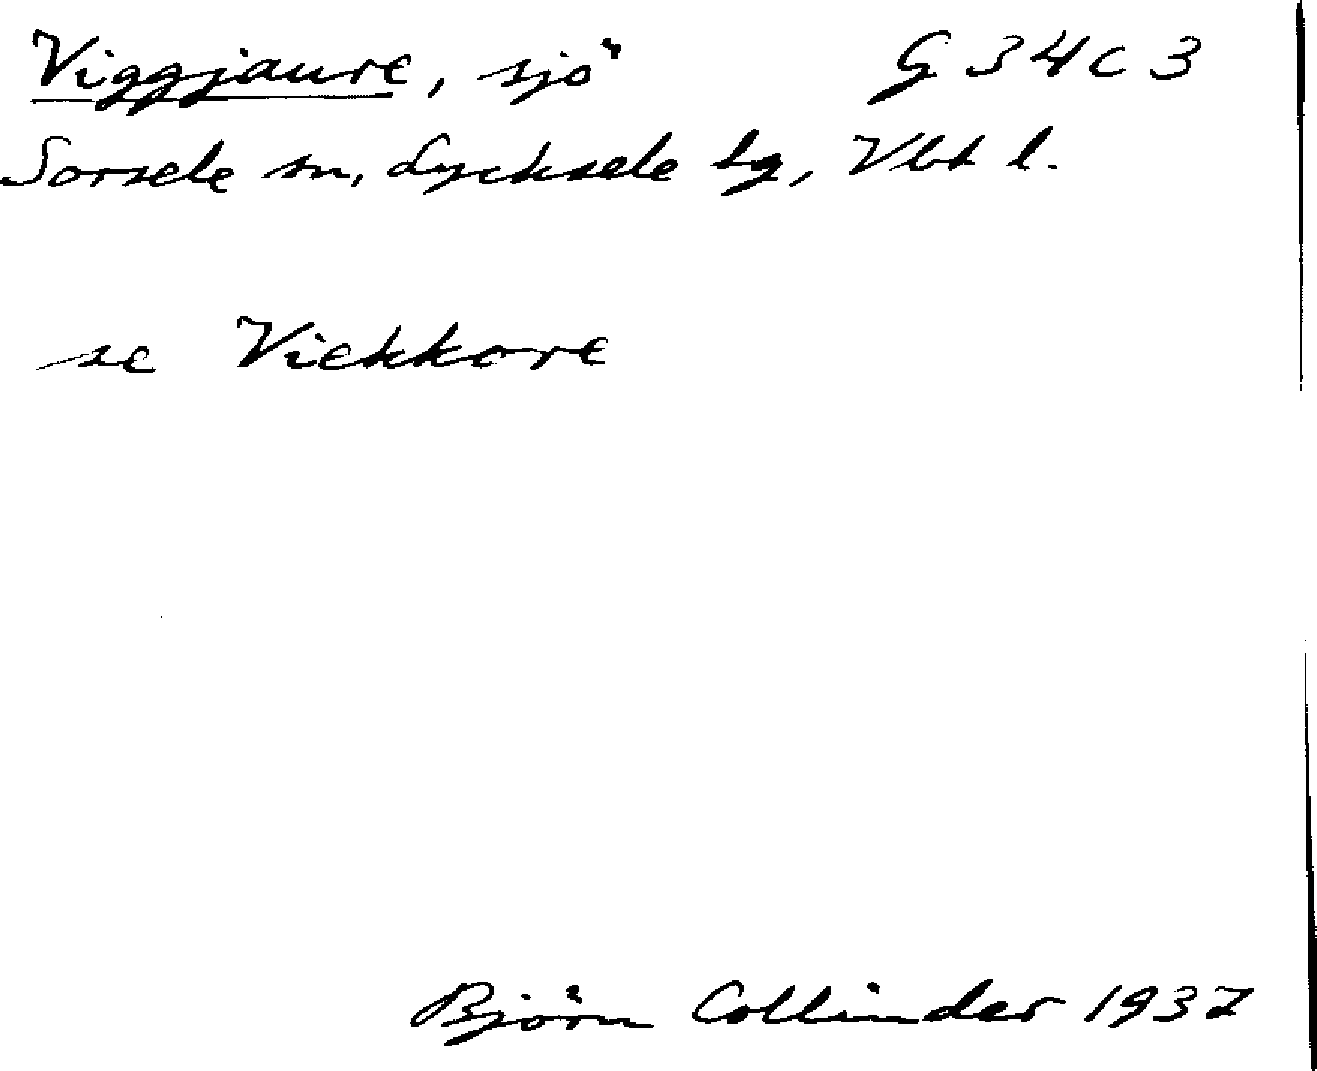 Viggjaure, sjö G 34 c 3
Sorsele sn, Lycksele lg, Vbt l.
se Viekkore
Björn Collinder 1937